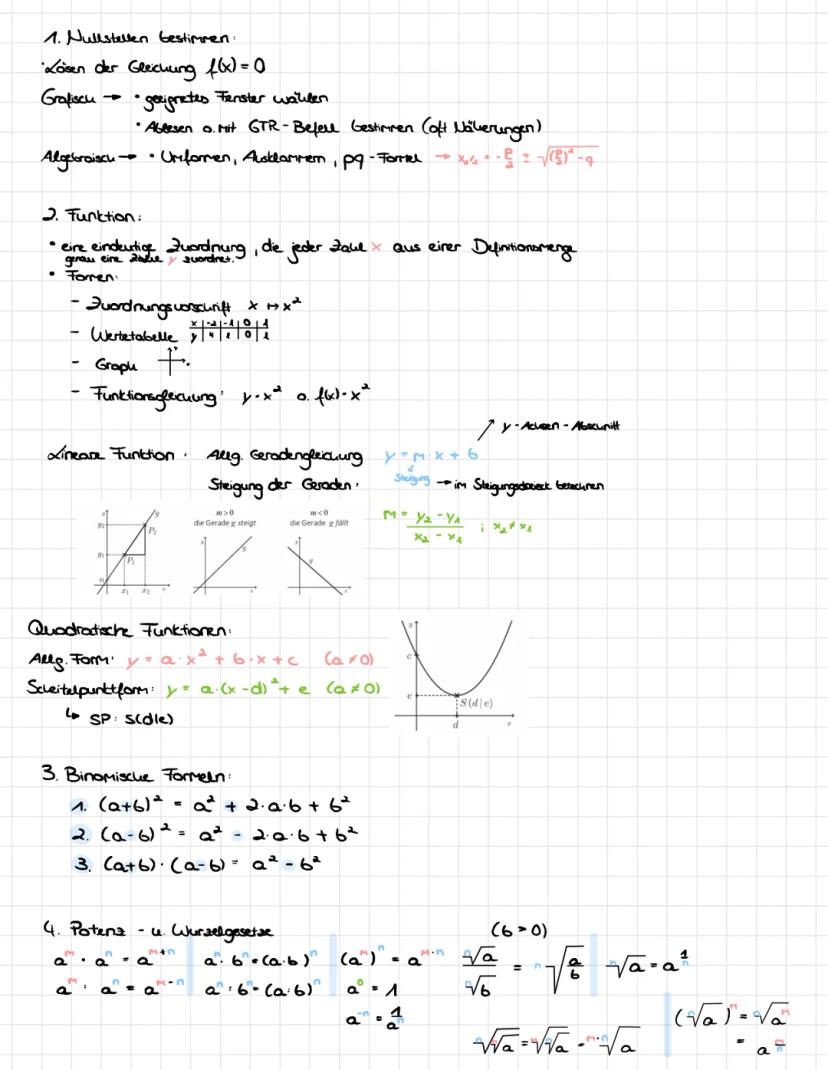 1. Nullstellen bestimmen:
·Lösen der Gleichung f(x) = 0
Grafisch → • geeignetes Fenster wählen
• Ablesen o. mit GTR-Befehl bestimmen (oft Näherungen)
Algebraisch → • Umformen, Ausklammern, pq-Formel → x₁,₂ = -p/2 ± √((p/2)² - q)
2. Funktion:
• eine eindeutige Zuordnung, die jeder Zahl x aus einer Definitionsmenge
genau eine Zahl y zuordnet.
• Formen:
- Zuordnungsvorschrift x ↦ x²
- Wertetabelle x | -2 | -1 | 0 | 1
y | 4 | 1 | 0 | 1
- Graph
- Funktionsgleichung: y = x² o. f(x) = x²
↗ y-Achsen-Abschnitt
Lineare Funktion: Allg. Geradengleichung y = m · x + b
Steigung der Geraden: Steigung → im Steigungsdreieck berechnen
m > 0 m < 0
die Gerade g steigt die Gerade g fällt
m = (y₂ - y₁)/(x₂ - x₁) ; x₂ ≠ x₁
y₂ P₂ g
y₁ P₁ g g
x₁ x₂ x
Quadratische Funktionen:
Allg. Form: y = a · x² + b · x + c (a ≠ 0)
Scheitelpunktform: y = a · (x - d)² + e (a ≠ 0)
↳ SP: S(d|e)
y
c
e S(d|e)
d x
3. Binomische Formeln:
1. (a+b)² = a² + 2·a·b + b²
2. (a-b)² = a² - 2·a·b + b²
3. (a+b) · (a-b) = a² - b²
4. Potenz - u. Wurzelgesetze (b > 0)
aᵐ · aⁿ = aᵐ⁺ⁿ aⁿ · bⁿ = (a·b)ⁿ (aᵐ)ⁿ = aᵐ·ⁿ ⁿ√a / ⁿ√b = ⁿ√(a/b) ⁿ√a = a^(1/n)
aᵐ : aⁿ = aᵐ⁻ⁿ aⁿ : bⁿ = (a:b)ⁿ a⁰ = 1
a⁻ⁿ = 1/aⁿ (ⁿ√a)ᵐ = ⁿ√aᵐ
ⁿ√ᵐ√a = ᵐ√ⁿ√a = ᵐ·ⁿ√a = a^(m/n)